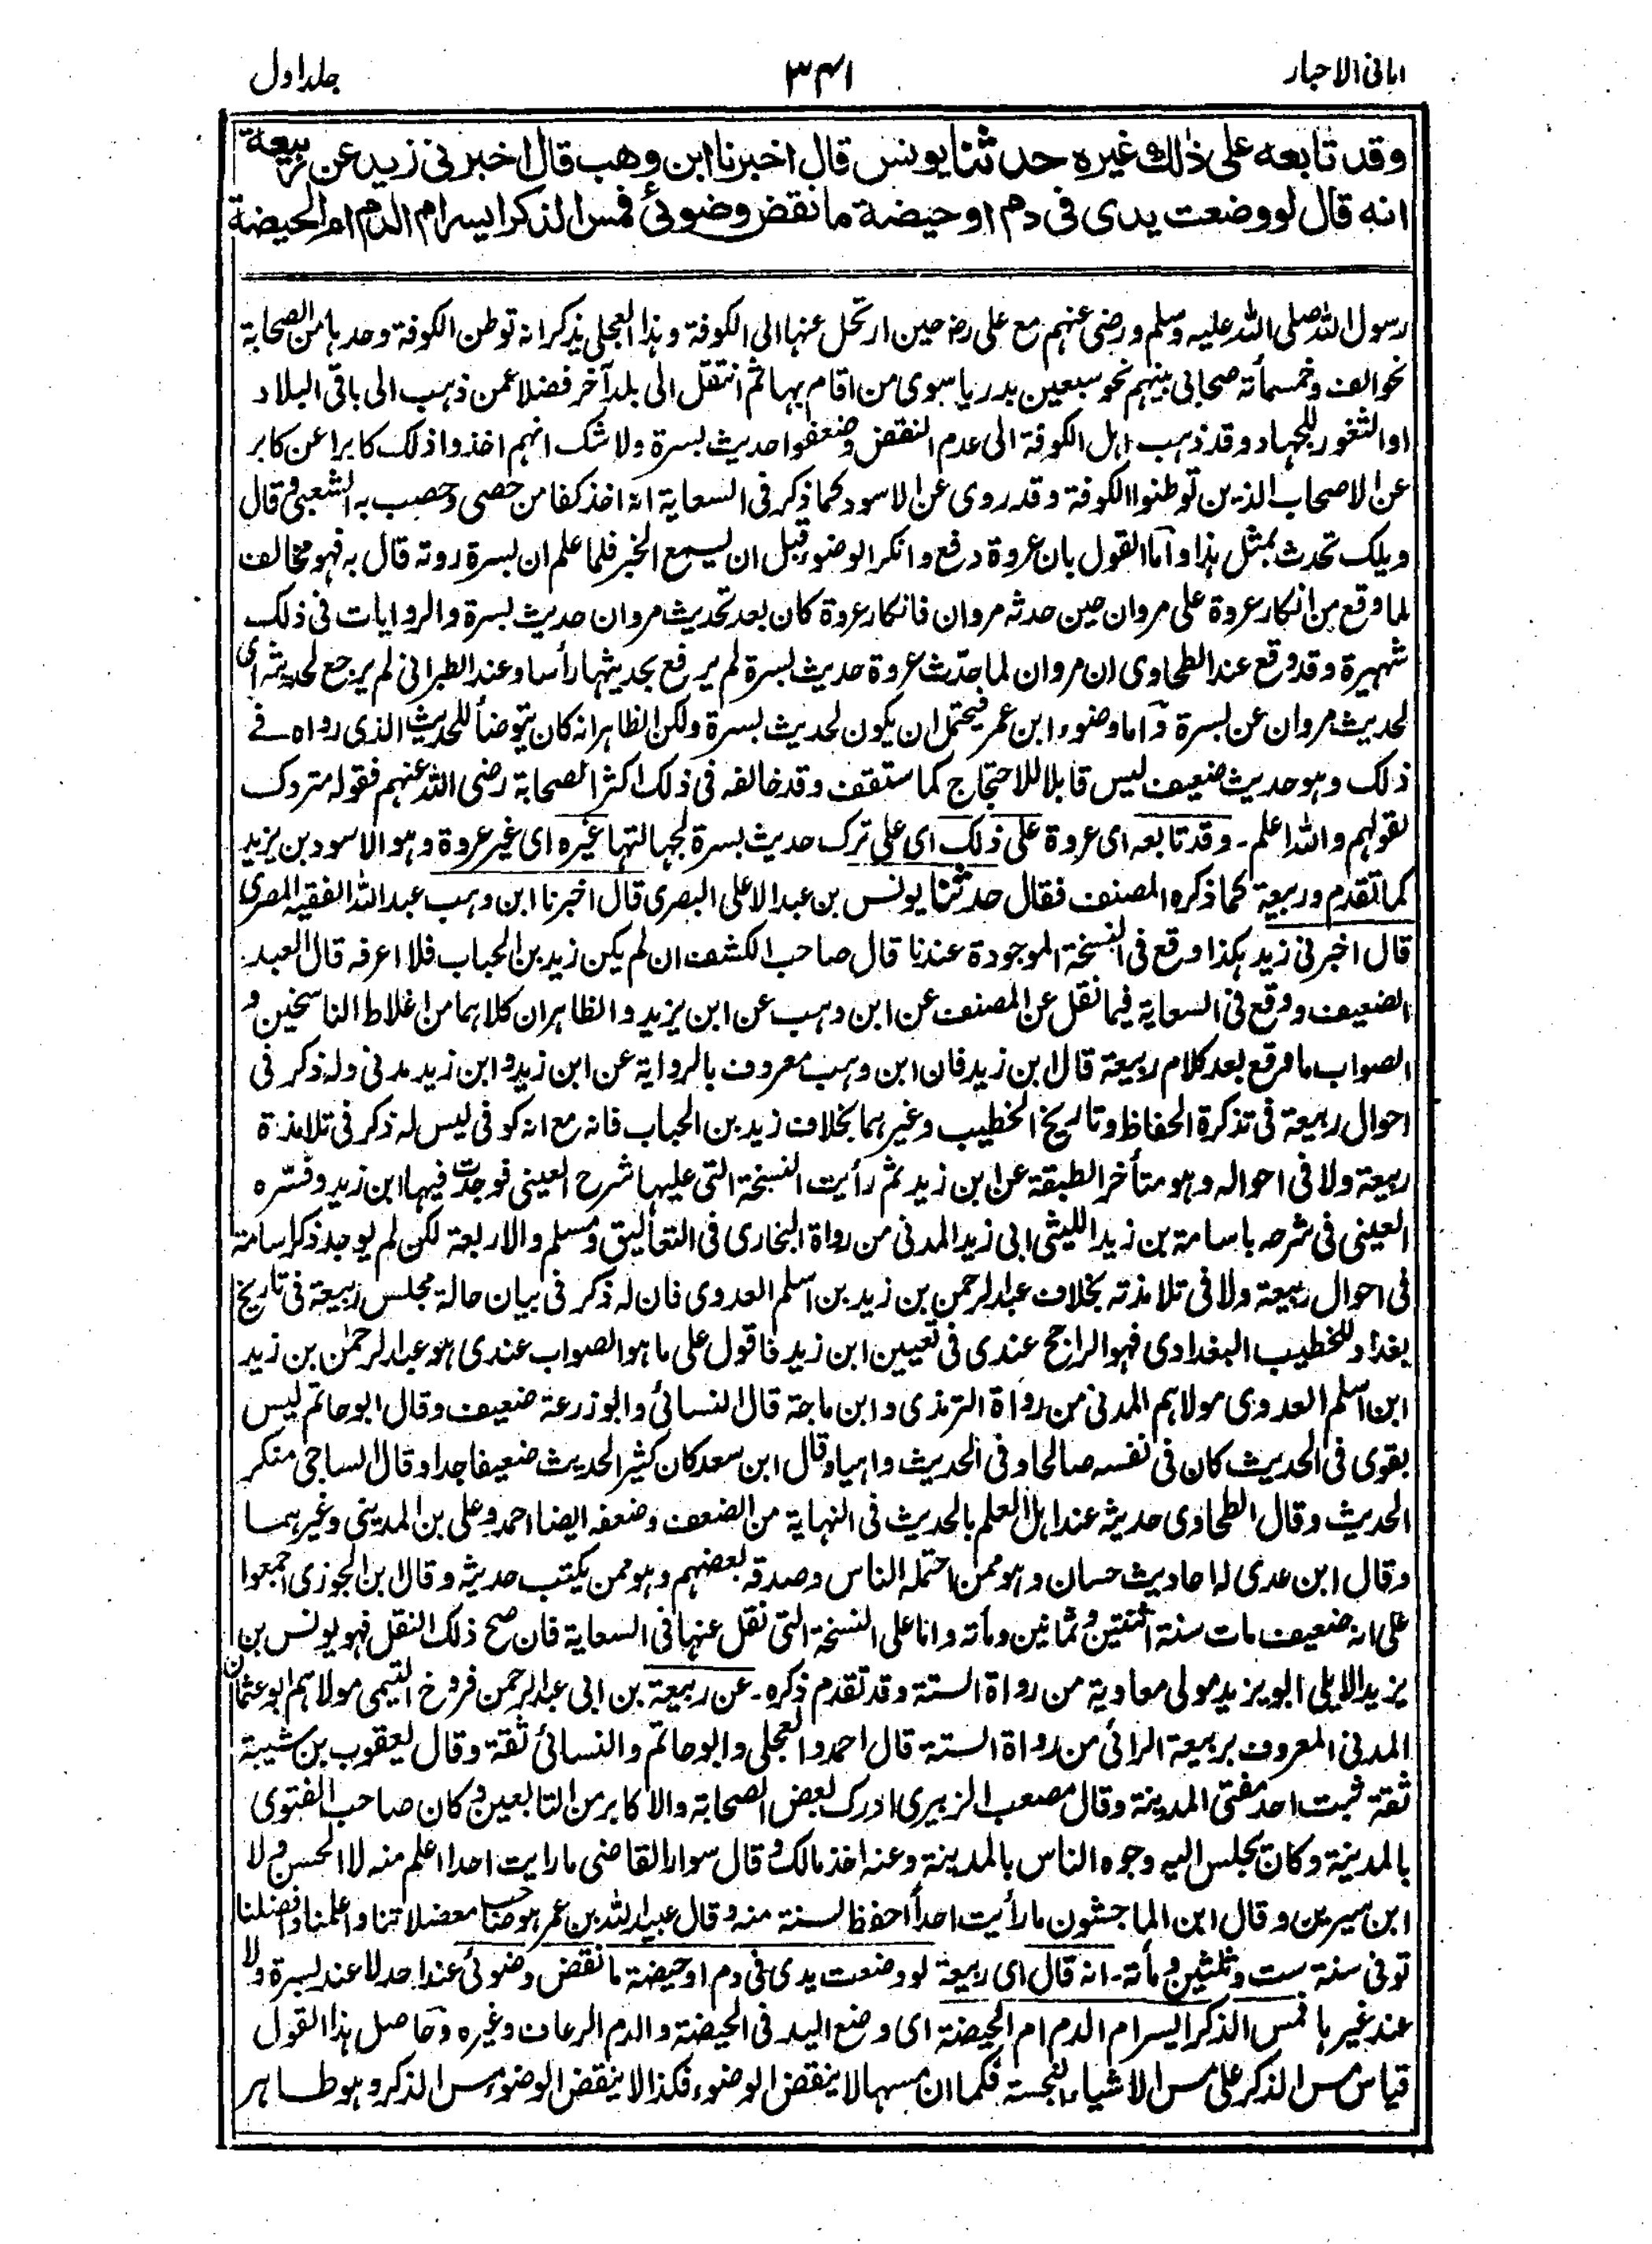 امانی الاحبار
۳۴۱
جلد اول
وقد تابعه علی ذلك غیره حدثنا یونس قال اخبرنا ابن وهب قال اخبرنی زید عن ربیعة
انه قال لو وضعت یدی فی دم او حیضة ما نقض وضوئی فمس الذکر ایسر ام الدم ام الحیضة
رسول الله صلی الله علیه وسلم ورضی عنهم مع علی رض حین ارتحل عنها الی الکوفة وهذا العجلی یذکر انه توطن الکوفة وحدها من الصحابة
نحو الف وخمسمأة صحابی بینهم نحو سبعین بدریا سوی من اقام بها ثم انتقل الی بلد آخر فضلا عمن ذهب الی باقی البلاد
او الثغور للجهاد وقد ذهب اهل الکوفة الی عدم النقض وضعفوا حدیث بسرة ولا شک انهم اخذوا ذلک کابرا عن کابر
عن الاصحاب الذین توطنوا الکوفة وقد روی عن الاسود کما ذکر فی السعایة انه اخذ کفا من حصی وحصب به الشعبی وقال
ویلک تحدث بمثل هذا وأما القول بان عروة دفع وانکر الوضوء قبل ان یسمع الخبر فلما علم ان بسرة روته قال به فهو مخالف
لما وقع من انکار عروة علی مروان حین حدثه مروان فانکار عروة کان بعد تحدیث مروان حدیث بسرة والروایات فی ذلک
شهیرة وقد وقع عند الطحاوی ان مروان لما حدّث عروة حدیث بسرة لم یرفع بحدیثها رأسا وعند الطبرانی لم یرجع لحدیثه ای
لحدیث مروان عن بسرة وآما وضوء ابن عمر فیحتمل ان یکون لحدیث بسرة ولکن الظاهر انه کان یتوضأ للحدیث الذی رواه فی
ذلک وهو حدیث ضعیف لیس قابلا للاحتجاج کما ستقف وقد خالفه فی ذلک اکثر الصحابة رضی الله عنهم فقوله متروک
لقولهم والله اعلم۔ وقد تابعه ای عروة علی ذلک ای علی ترک حدیث بسرة لجهالتها غیره ای غیر عروة وهو الاسود بن یزید
کما تقدم وربیعة کما ذکره المصنف فقال حدثنا یونس بن عبد الاعلی البصری قال اخبرنا ابن وهب عبد الله الفقیه المصری
قال اخبرنی زید هکذا وقع فی النسخة الموجودة عندنا قال صاحب الکشف ان لم یکن زید بن الحباب فلا اعرفه قال العبد
الضعیف ووقع فی السعایة فیما نقل عن المصنف عن ابن وهب عن ابن یزید والظاهر ان کلاهما من اغلاط الناسخین و
الصواب ما وقع بعد کلام ربیعة قال ابن زید فان ابن وهب معروف بالروایة عن ابن زید وابن زید مدنی وله ذکر فی
احوال ربیعة فی تذکرة الحفاظ وتاریخ الخطیب وغیرهما بخلاف زید بن الحباب فانه مع انه کوفی لیس له ذکر فی تلامذة
ربیعة ولا فی احواله وهو متأخر الطبقة عن ابن زید ثم رأیت النسخة التی علیها شرح العینی فوجدت فیها ابن زید وفسّره
العینی فی شرحه باسامة بن زید اللیثی ابی زید المدنی من رواة البخاری فی التعالیق ومسلم والاربعة لکن لم یوجد ذکر اسامة
فی احوال ربیعة ولا فی تلامذته بخلاف عبد الرحمن بن زید بن اسلم العدوی فان له ذکر فی بیان حالة مجلس ربیعة فی تاریخ
بغداد للخطیب البغدادی فهو الراجح عندی فی تعیین ابن زید فاقول علی ما هو الصواب عندی هو عبد الرحمٰن بن زید
ابن اسلم العدوی مولاهم المدنی من رواة الترمذی وابن ماجة قال النسائی وابو زرعة ضعیف وقال ابو حاتم لیس
بقوی فی الحدیث کان فی نفسه صالحا وفی الحدیث واهیا وقال ابن سعد کان کثیر الحدیث ضعیفا جدا وقال الساجی منکر
الحدیث وقال الطحاوی حدیثه عند اهل العلم بالحدیث فی النهایة من الضعف وضعفه ایضا احمد وعلی بن المدینی وغیرهما
وقال ابن عدی له احادیث حسان وهو ممن احتمله الناس وصدقه بعضهم وهو ممن یکتب حدیثه وقال ابن الجوزی اجمعوا
علی انه ضعیف مات سنة اثنتین وثمانین ومأته واما علی النسخة التی نقل عنها فی السعایة فان صح ذلک النقل فهو یونس بن
یزید الایلی ابو یزید مولی معاویة من رواة الستة وقد تقدم ذکره۔ عن ربیعة بن ابی عبد الرحمن فروخ التیمی مولاهم ابو عثمان
المدنی المعروف بربیعة الرائی من رواة الستة قال احمد والعجلی وابو حاتم والنسائی ثقة وقال یعقوب بن شیبة
ثقة ثبت احد مفتی المدینة وقال مصعب الزبیری ادرک بعض الصحابة والاکابر من التابعین وکان صاحب الفتوی
بالمدینة وکان یجلس الیه وجوه الناس بالمدینة وعنه اخذ مالک وقال سوار القاضی ما رایت احدا اعلم منه لا الحسن ولا
ابن سیرین وقال ابن الماجشون ما رأیت احداً احفظ لسنة منه وقال عبید الله بن عمر هو صاحب معضلاتنا واعلمنا وافضلنا
توفی سنة ست وثلثین ومأة۔ انه قال ای ربیعة لو وضعت یدی فی دم او حیضة ما نقض وضوئی عند احد لا عند بسرة ولا
عند غیرها فمس الذکر ایسر ام الدم ام الحیضة ای وضع الید فی الحیضة والدم الرعاف وغیره وحاصل هذا القول
قیاس مس الذکر علی مس الاشیاء النجسة فکما ان مسها لا ینقض الوضوء فکذا لا ینقض الوضوء مس الذکر وهو طاهر